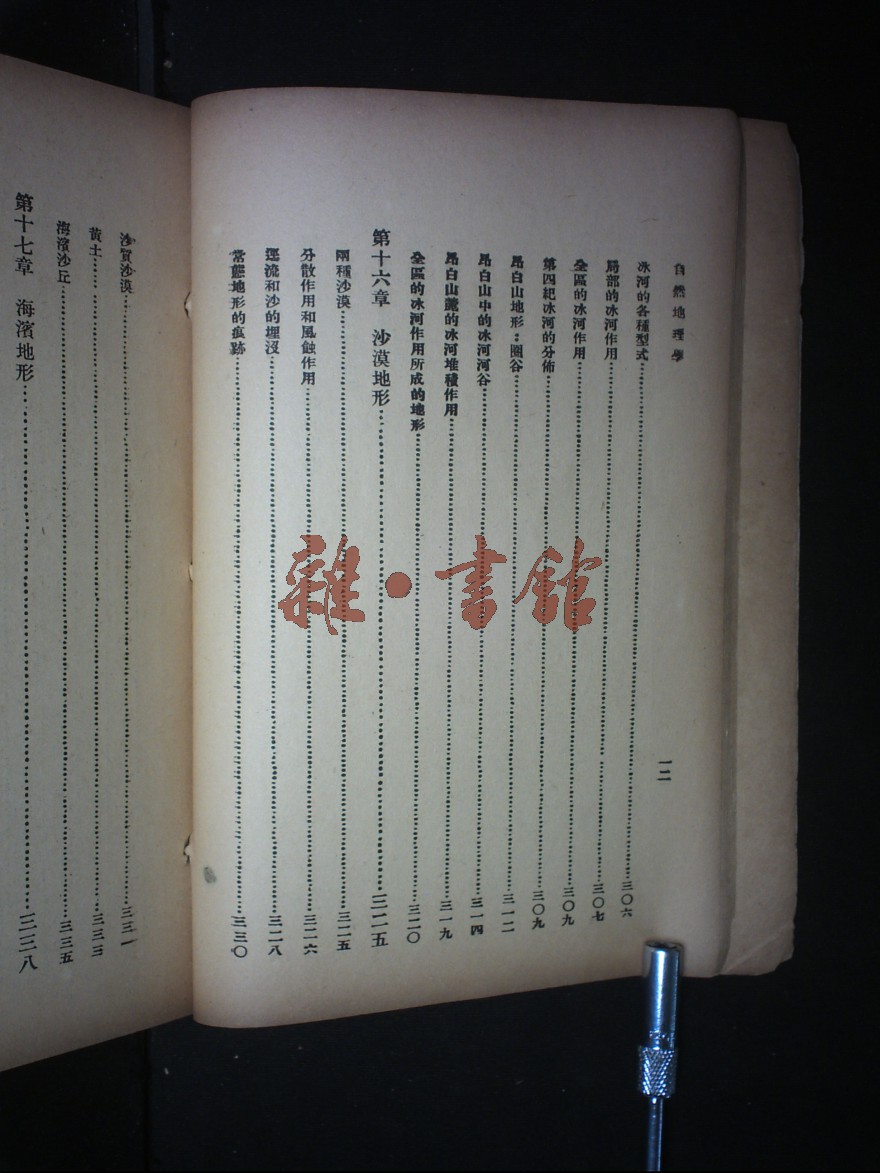 自然地理學
一二
冰河的各種型式……三〇六
局部的冰河作用……三〇七
全區的冰河作用……三〇九
第四紀冰河的分佈……三〇九
昂白山地形：圈谷……三一二
昂白山中的冰河河谷……三一四
昂白山麓的冰河堆積作用……三一九
全區的冰河作用所成的地形……三二〇
第十六章 沙漠地形……三二五
兩種沙漠……三二五
分散作用和風蝕作用……三二六
逕流和沙的埋沒……三二八
常態地形的痕跡……三三〇
沙質沙漠……三三一
黃土……三三三
海濱沙丘……三三五
第十七章 海濱地形……三三八
雜·書館